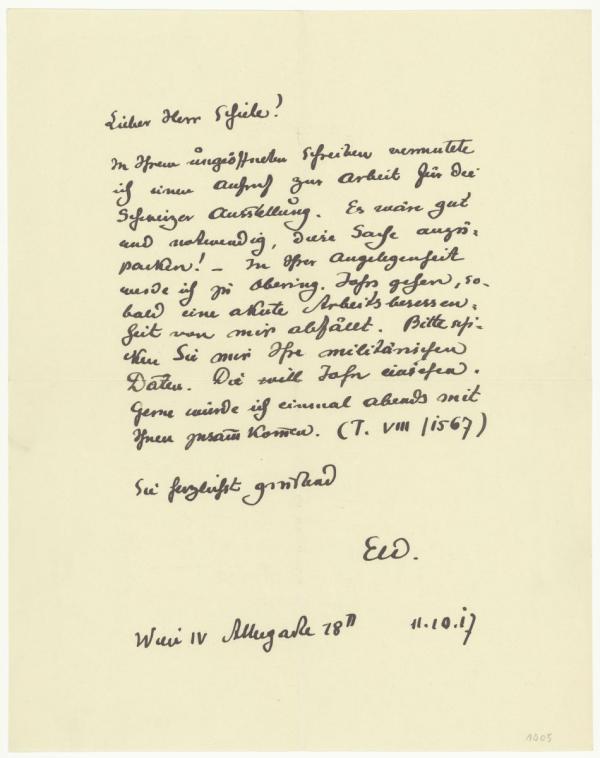 Lieber Herr Schiele!
In Ihrem ungeöffneten Schreiben vermutete
ich einen Aufruf zur Arbeit für die
Schweizer Ausstellung. Es wäre gut
und notwendig, diese Sache anzu-
packen! – In Ihrer Angelegenheit
werde ich zu Obering. Jahn gehen, so-
bald eine akute Arbeitsbesessen-
heit von mir abfällt. Bitte schi-
cken Sie mir Ihre militärischen
Daten. Die will Jahn einsehen.
Gerne würde ich einmal abends mit
Ihnen zusam̅kom̅en. (T. VIII / 1567)
Sie herzlichst grüssend
Wien IV 11.10.17
1405